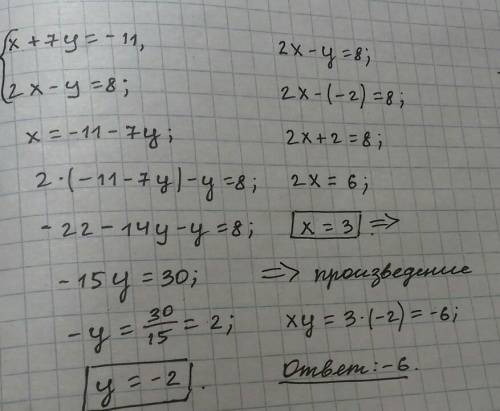 x + 7y = -11,
2x - y = 8;
x = -11 - 7y;
2·(-11 - 7y) - y = 8;
-22 - 14y - y = 8;
-15y = 30;
-y = 30/15 = 2;
y = -2.
2x - y = 8;
2x - (-2) = 8;
2x + 2 = 8;
2x = 6;
x = 3. =>
=> произведение
xy = 3·(-2) = -6;
Ответ: -6.